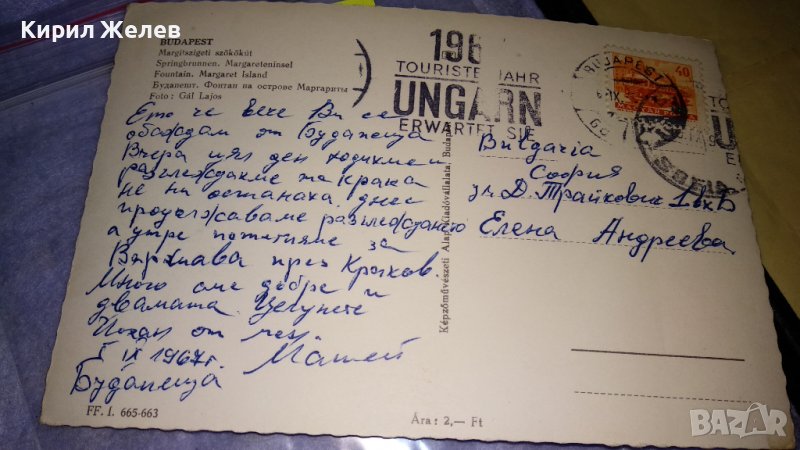 Кирил Желев
BUDAPEST
Margitszigeti szökőkút
Springbrunnen. Margareteninsel
Fountain. Margaret Island
Будапешт. Фонтан на острове Маргариты
Foto : Gál Lajos
196
TOURISTENJAHR
UNGARN
ERWARTET SIE
BUDAPEST
40
SOFIA
Ето че вече Ви се
обаждам от Будапеща
Вчера цял ден ходихме и
разглеждахме та крака
не ни останаха, днес
продължаваме разглеждането
а утре потегляме за
Варшава през Краков.
Много сме добре и
двамата. Целунете
от мен.
Матей
IX 1967г.
Будапеща
България
София
ул. Д. Трайкович 1 вх Б
Елена Андреева
Képzőművészeti Alap Kiadóvállalata, Budapest
FF. I. 665-663
Ára : 2,— Ft
BAZAR
bg